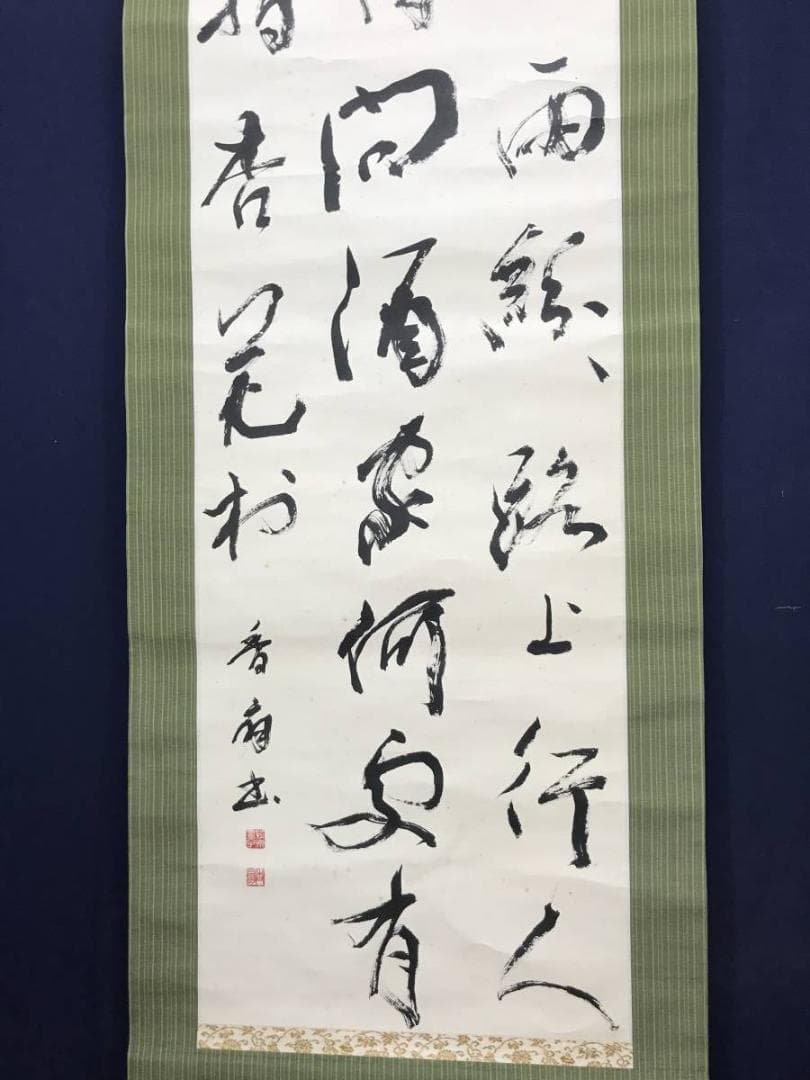 雨紛々路上行人
問酒家何處有
指杏花村
香
書